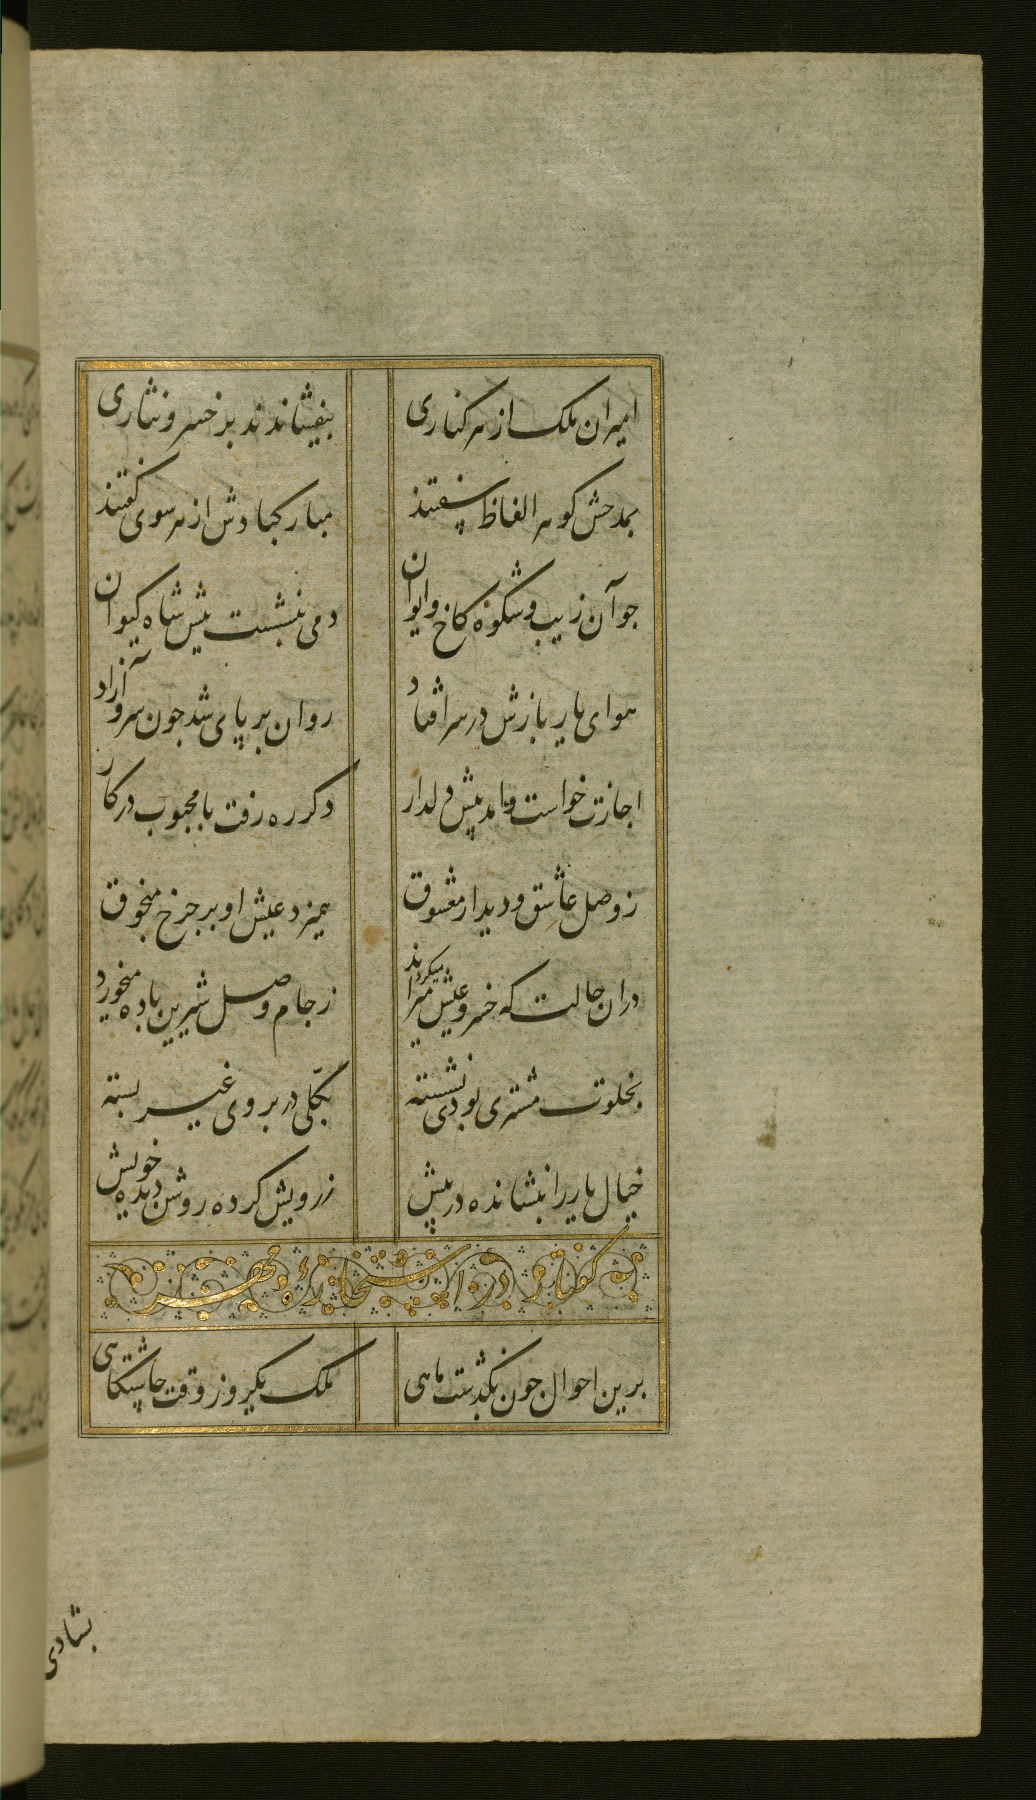 امیران ملک از هر کناری
بیفشاندند بر خسرو نثاری
بمدحش گوهر الفاظ سفتند
مبارکبادش از هر سوی گفتند
جو آن زیب و شکوه کاخ و ایوان
دمی بنشست پیش شاه کیوان
هوای یار بازش در سر افتاد
روان بر پای شد جون سرو آزاد
اجازت خواست وامد پیش دلدار
دکر ره رفت با محبوب در کار
ز وصل عاشق و دیدار معشوق
همیزد عیش او بر جرخ منجوق
دران حالت که خسرو عیش میراند
ز جام وصل شیرین باده میخورد
بخلوت مشتری بودی نشسته
بکلی در بروی غیر بسته
خیال یار را بنشانده در پیش
ز رویش کرده روشن دیده خویش
برین احوال جون بگذشت ماهی
ملک یکروز وقت چاشتگاهی
بشادی